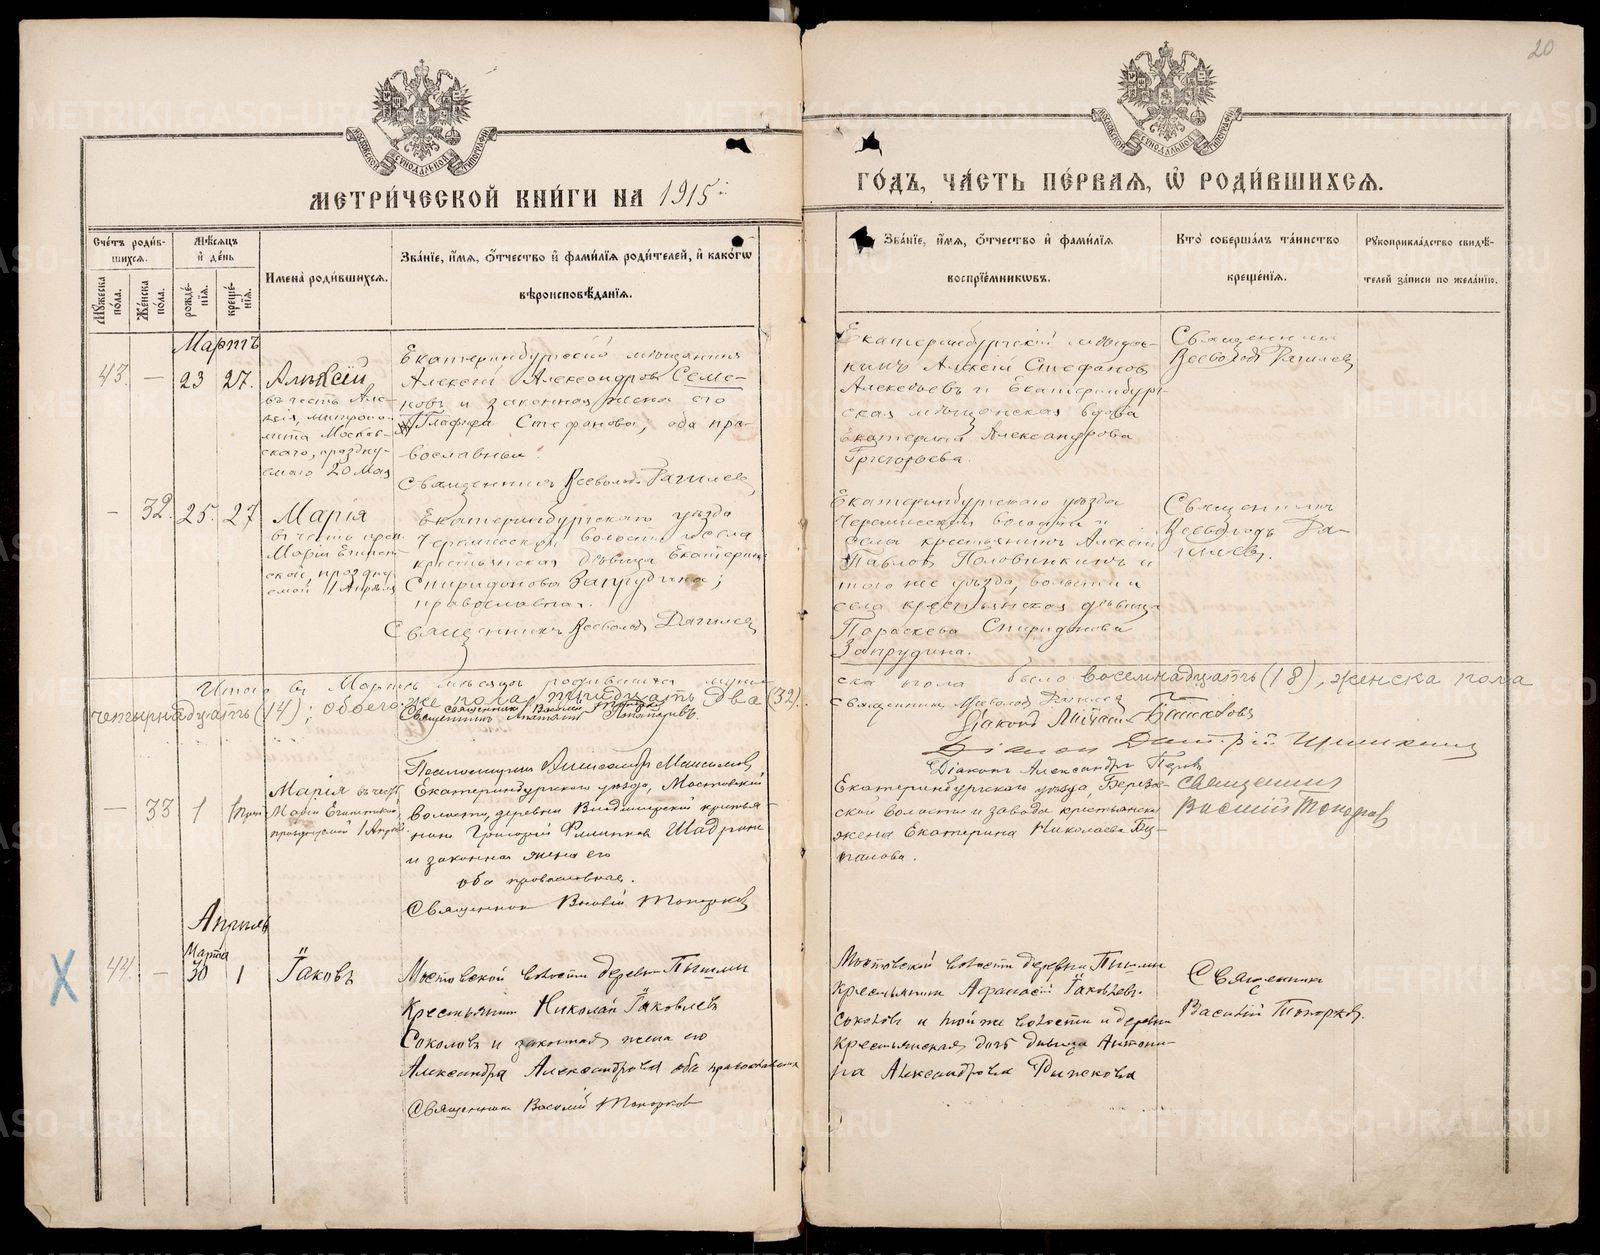 20
МЕТРИ́ЧЕСКОЙ КНИ́ГИ НА 1915
ГО́ДЪ, ЧА́СТЬ ПЕ́РВАЯ, Ѡ РОДИ́ВШИХСЯ.
Сче́тъ роди́в-
шихся.
Мꙋжеска по́ла.
Же́нска по́ла.
Мѣ́сяцъ
и҆ де́нь
рожде́-
нїя.
креще́-
нїя.
Имена̀ роди́вшихся.
Зва́нїе, и҆́мя, ѻ҆́тчество и҆ фами́лїя роди́телей, и҆ како́гѡ
вѣроисповѣ́данїя.
Зва́нїе, и҆́мя, ѻ҆́тчество и҆ фами́лїя
воспрїе́мникѡвъ.
Кто̀ соверша́лъ та́инство
креще́нїя.
Рꙋкоприкла́дство свидѣ́-
телей за́писи по жела́нїю.
Мартъ
43. — 23 27.
Алексій
въ честь Але-
ксія, митропо-
лита Москов-
скаго, праздну-
емаго 20 мая
Екатеринбургскій мѣщанинъ
Алексій Александровъ Семе-
новъ и законная жена его
Глафира Стефанова, оба пра-
вославные.
Священникъ Всеволодъ
Екатеринбургскій мѣща-
нинъ Алексій Стефановъ
Алексѣевъ и Екатеринбург-
ская мѣщанская вдова
Екатерина Александрова
Григорьева.
Священникъ
Всеволодъ
— 32. 25. 27
Марія
въ честь преп.
Маріи Египет-
ской, праздну-
емой 1 Апрѣля
Екатеринбургскаго уѣзда
Черемисской волости и села
крестьянская дѣвица Екатерина
Спиридонова Запрудина;
православная.
Священникъ Всеволодъ
Екатеринбургскаго уѣзда
Черемисской волости и
села крестьянинъ Алексій
Павловъ Половинкинъ и
того же уѣзда, волости и
села крестьянская дѣвица
Параскева Спиридонова
Запрудина.
Священникъ
Всеволодъ
Итого въ Мартѣ мѣсяцѣ родившихся муже-
ска пола было восемнадцать (18), женска пола
четырнадцать (14); обоего же пола тридцать два (32).
Священникъ Василій
Священникъ Анатолій
Священникъ Всеволодъ
Діаконъ
Діаконъ Димитрій
Діаконъ Александръ
— 33 1
Марія въ честь
Маріи Египетской,
празднуемой 1 Апрѣля
Екатеринбургскаго уѣзда, Мостовской
волости, деревни крестья-
нинъ Григорій Филипповъ Шадринъ
и законная жена его
оба православные.
Священникъ Василій Топорковъ
Екатеринбургскаго уѣзда, Березов-
ской волости и завода крестьянская
жена Екатерина Николаева
Священникъ
Василій Топорковъ
Апрѣль
Марта
44. — 30 1
Іаковъ
Мостовской волости деревни Пышмы
Крестьянинъ Николай Іаковлевъ
Соколовъ и законная жена его
Александра Александрова оба православные
Священникъ Василій Топорковъ
Мостовской волости деревни Пышмы
Крестьянинъ Афанасій Іаковлевъ
Соколовъ и той же волости и деревни
Крестьянская дочь дѣвица Антони-
на Александрова Рыжкова
Священникъ
Василій Топорковъ.
X
METRIKI.GASO-URAL.RU